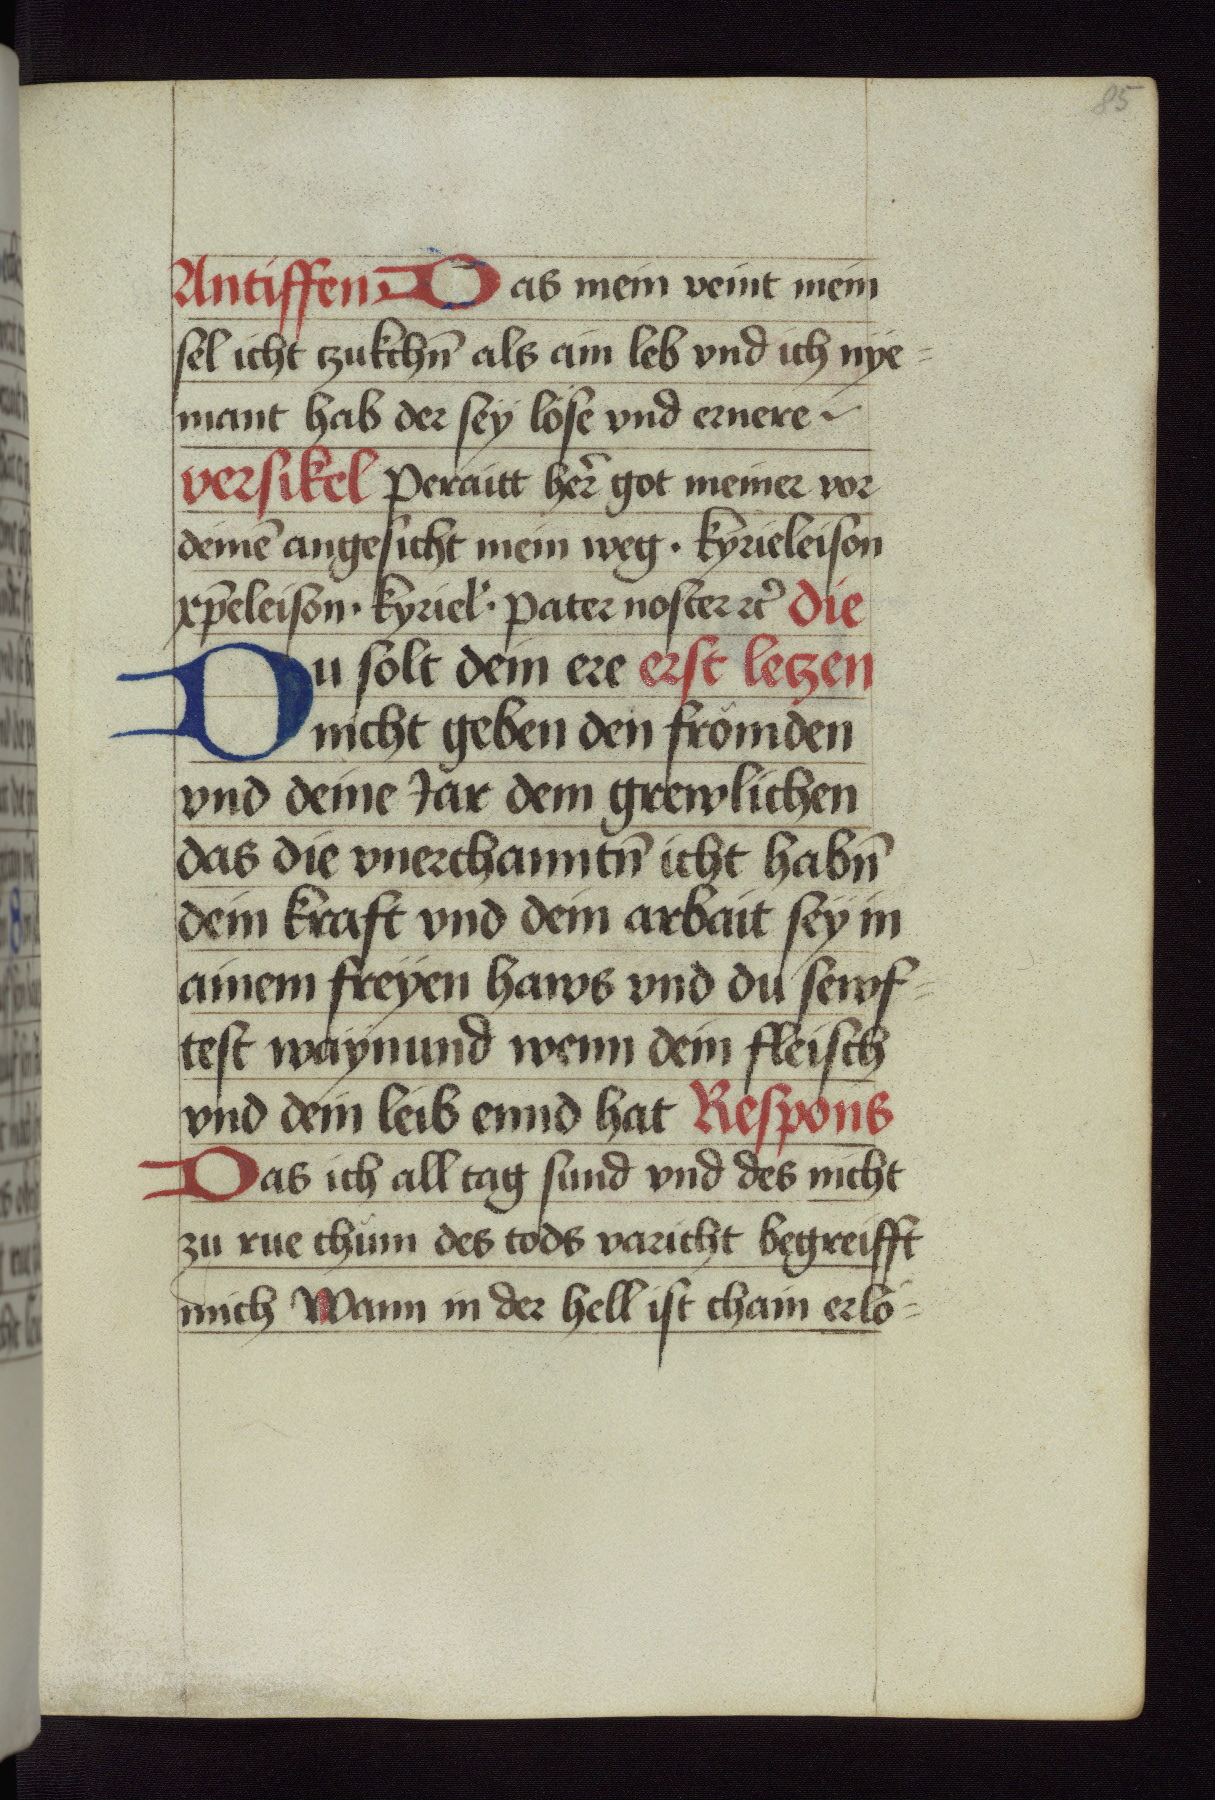 85
Antiffen Das mein veint mein
sel icht tzukchn̄ als ain leb vnd ich nye=
mant hab der sey löse vnd ernere
versikel Peraitt her̄ got meiner vor
deinē angesicht mein weg · kyrieleison
xp̄eleison · kyriel· Pater noster ꝛc̄ die
Du solt dein ere erst letzen
nicht geben den frömden
vnd deine Jar dem grewlichen
das die vnerchanntn̄ icht habn̄
dein kraft vnd dein arbait sey in
ainem freyen haws vnd du sewf=
test waynund wenn dein fleisch
vnd dein leib ennd hat Respons
Das ich all tag sund vnd des nicht
zu rue chüm des tods varicht begreifft
mich Wann in der hell ist chain erlö=